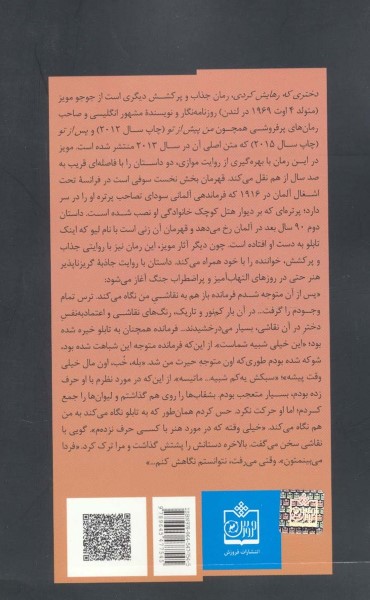 دختری که رهایش کردی، رمان جذاب و پرکشش دیگری است از جوجو مویز
(متولد ۴ اوت ۱۹۶۹ در لندن) روزنامه‌نگار و نویسندهٔ مشهور انگلیسی و صاحب
رمان‌های پرفروشی همچون من پیش از تو (چاپ سال ۲۰۱۲) و پس از تو
(چاپ سال ۲۰۱۵) که متن اصلی آن در سال ۲۰۱۳ منتشر شده است. مویز
در این رمان با بهره‌گیری از روایت موازی، دو داستان را با فاصله‌ای قریب به
صد سال از هم نقل می‌کند. قهرمان بخش نخست سوفی است در فرانسهٔ تحت
اشغال آلمان در ۱۹۱۶ که فرماندهی آلمانی سودای تصاحب پرتره او را در سر
دارد؛ پرتره‌ای که بر دیوار هتل کوچک خانوادگی او نصب شده است. داستان
دوم ۹۰ سال بعد در آلمان رخ می‌دهد و قهرمان آن زنی است با نام لیو که اینک
تابلو به دست او افتاده است. چون دیگر آثار مویز، این رمان نیز با روایتی جذاب
و پرکشش، خواننده را با خود همراه می‌کند. داستان با روایت جاذبهٔ گریزناپذیر
هنر حتی در روزهای التهاب‌آمیز و پراضطراب جنگ آغاز می‌شود:
«پس از آن متوجه شدم فرمانده باز هم به نقاشی من نگاه می‌کند. ترس تمام
وجودم را گرفت... در آن بار کم‌نور و تاریک، رنگ‌های نقاشی و اعتمادبه‌نفس
دختر در آن نقاشی، بسیار می‌درخشیدند. فرمانده همچنان به تابلو خیره شده
بود؛ «این خیلی شبیه شماست». از این‌که فرمانده متوجه این شباهت شده بود،
شوکه شده بودم طوری‌که اون متوجه حیرت من شد. «بله، خُب، اون مال خیلی
وقت پیشه»؛ «سبکش یه‌کم شبیه... ماتیسه». از این‌که در مورد نظرم با او حرف
زده بودم، بسیار متعجب بودم. بشقاب‌ها را روی هم گذاشتم و لیوان‌ها را جمع
کردم؛ اما او حرکت نکرد. حس کردم همان‌طور که به تابلو نگاه می‌کند به من
هم نگاه می‌کند. «خیلی وقته که در مورد هنر با کسی حرف نزده‌م». گویی با
نقاشی سخن می‌گفت. بالاخره دستانش را پشتش گذاشت و مرا ترک کرد. «فردا
می‌بینمتون». وقتی می‌رفت، نتوانستم نگاهش کنم...»
انتشارات فروزش